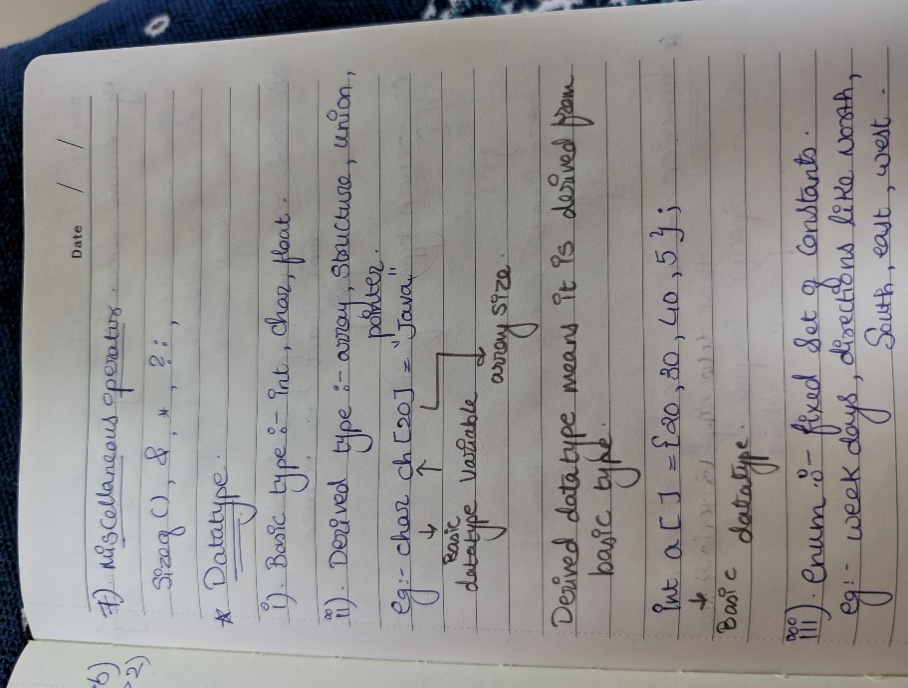 Date / /
7). Miscellaneous operator.
Sizeof (), &, *, ?:,
* Datatype.
i). Basic type :- int, char, float.
ii). Derived type :- array, structure, union,
pointer.
eg:- char ch [20] = "Java"
Basic
datatype variable
array size.
Derived datatype means it is derived from
basic type.
int a [ ] = {20, 30, 40, 5};
Basic datatype.
iii). enum :- fixed set of constants.
eg:- week days, directions like North,
South, east, west.
6)
>2)